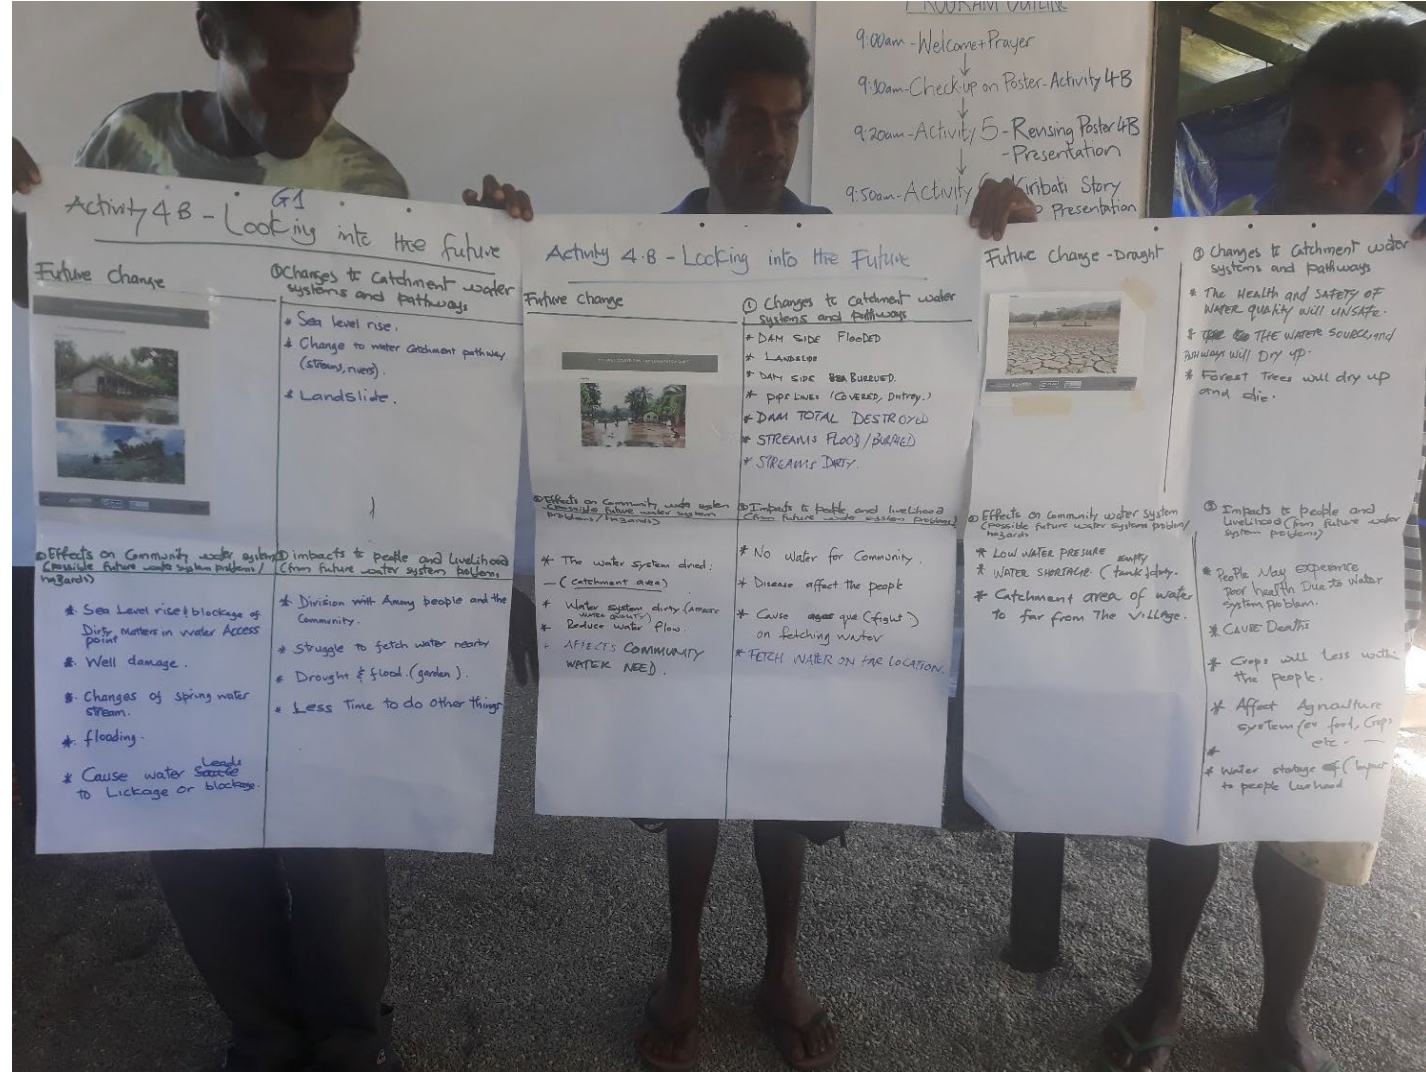 PROGRAM OUTLINE
9:00am - Welcome + Prayer
9:10am - Check up on Poster - Activity 4B
9:20am - Activity 5 - Revising Poster 4B
- Presentation
9:50am - Activity
Kiribati Story
Presentation
G1
Activity 4B - Looking into the future
Future change
① Changes to Catchment water
systems and pathways
* Sea level rise.
* Change to water catchment pathway
(streams, rivers).
* Landslide.
Effects on Community water system
(possible future water system problems/
hazards)
* Sea Level rise & blockage of
Dirty Matters in water Access
point
* Well damage.
* Changes of spring water
stream.
* flooding.
* Cause water Leads
to Lickage or blockage.
impacts to people and Livelihood
(from future water system problems
* Division with Among people and the
Community.
* Struggle to fetch water nearby
* Drought & flood. (garden).
* Less Time to do other things
Activity 4.B - Looking into the Future
Future Change
① Changes to Catchment water
systems and pathways
* DAM SIDE FLOODED
* LANDSLIDE
* DAM SIDE BURRUED.
* PIPS LINES (COVERED,
* DAM TOTAL DESTROYED
* STREAMS FLOOD / BURRIED
* STREAMS DIRTY.
Effects on Community water system
(possible future water system
problems/hazards)
* The water system dried:
- (catchment area)
* Water system dirty
WATER QUALITY)
* Reduce water flow.
* AFFECTS COMMUNITY
WATER NEED.
Impacts to people and livelihood
(from future water system problems)
* No water for Community.
* Disease affect the people
* Cause que (fight)
on fetching water
* FETCH WATER ON FAR LOCATION.
Future Change - Drought
① Changes to Catchment water
systems and pathways
* The HEALTH and SAFETY OF
WATER QUALITY will UNSAFE.
* THE WATER SOURCE and
PATHWAYS WILL DRY UP.
* Forest Trees will dry up
and die.
Effects on Community water system
(possible future water systems problem/
hazards
* LOW WATER PRESURE
* WATER SHORTAGE (tank) empty
* Catchment area of water
to far from The VILLAGE.
③ Impacts to people and
Livelihood (from future water
system problems)
* People May experience
Poor health Due to Water
System Problem.
* CAUSE Deaths
* Crops will Less within
the people.
* Affect Agriculture
system (ex food, Crops
etc. -
*
* Water storage
to people